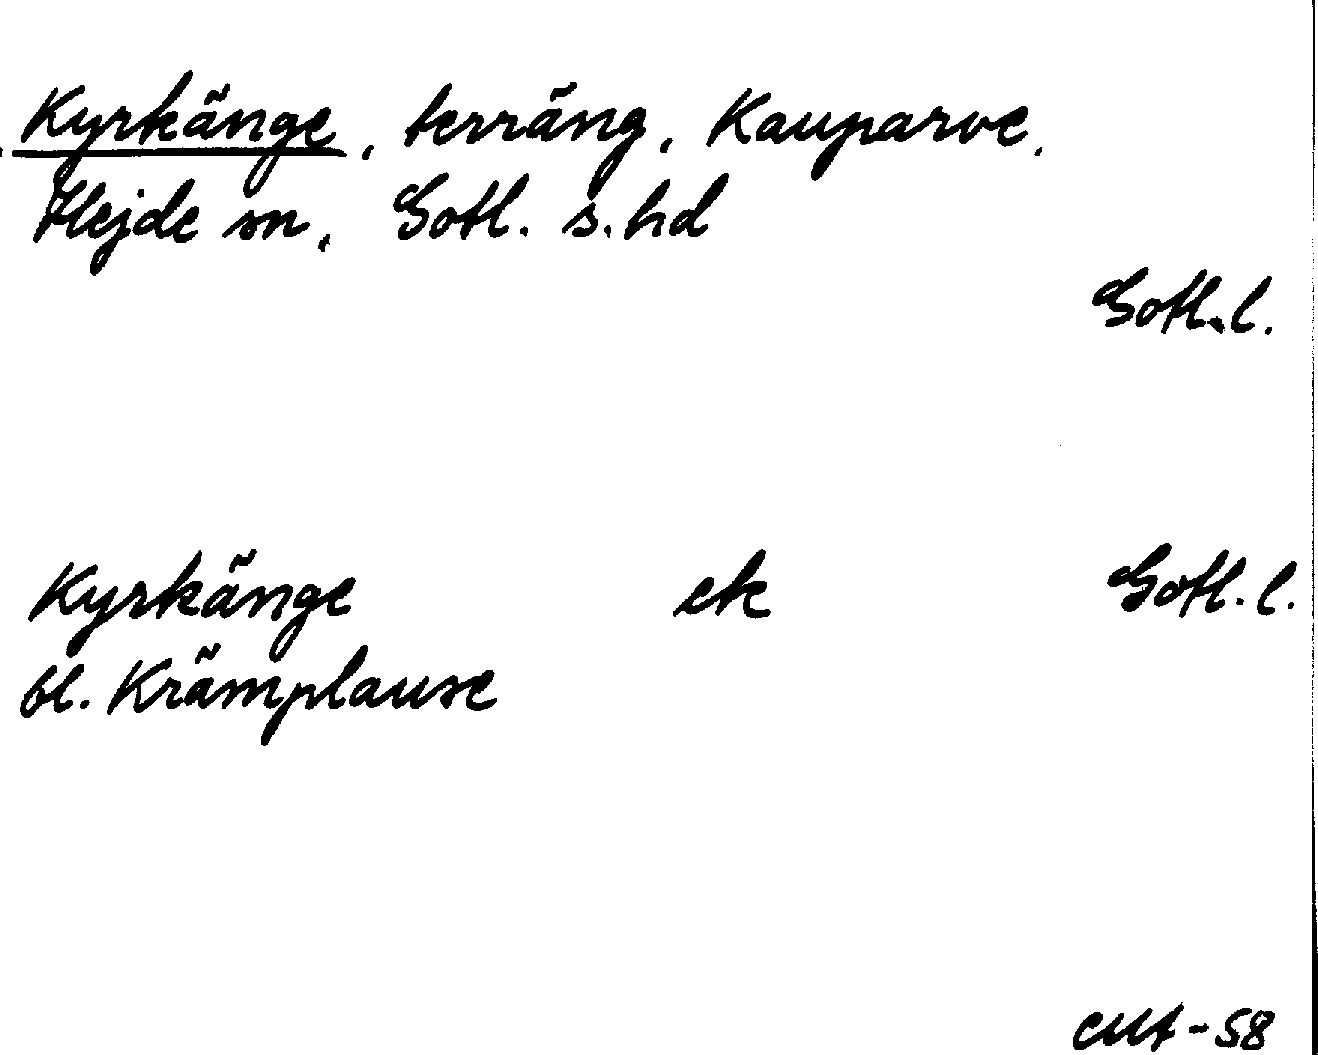 Kyrkänge, terräng, Kauparve,
Hejde sn, Gotl. s. hd
Gotl. l.
Kyrkänge ek Gotl. l.
bl. Krämplause
CMt-58